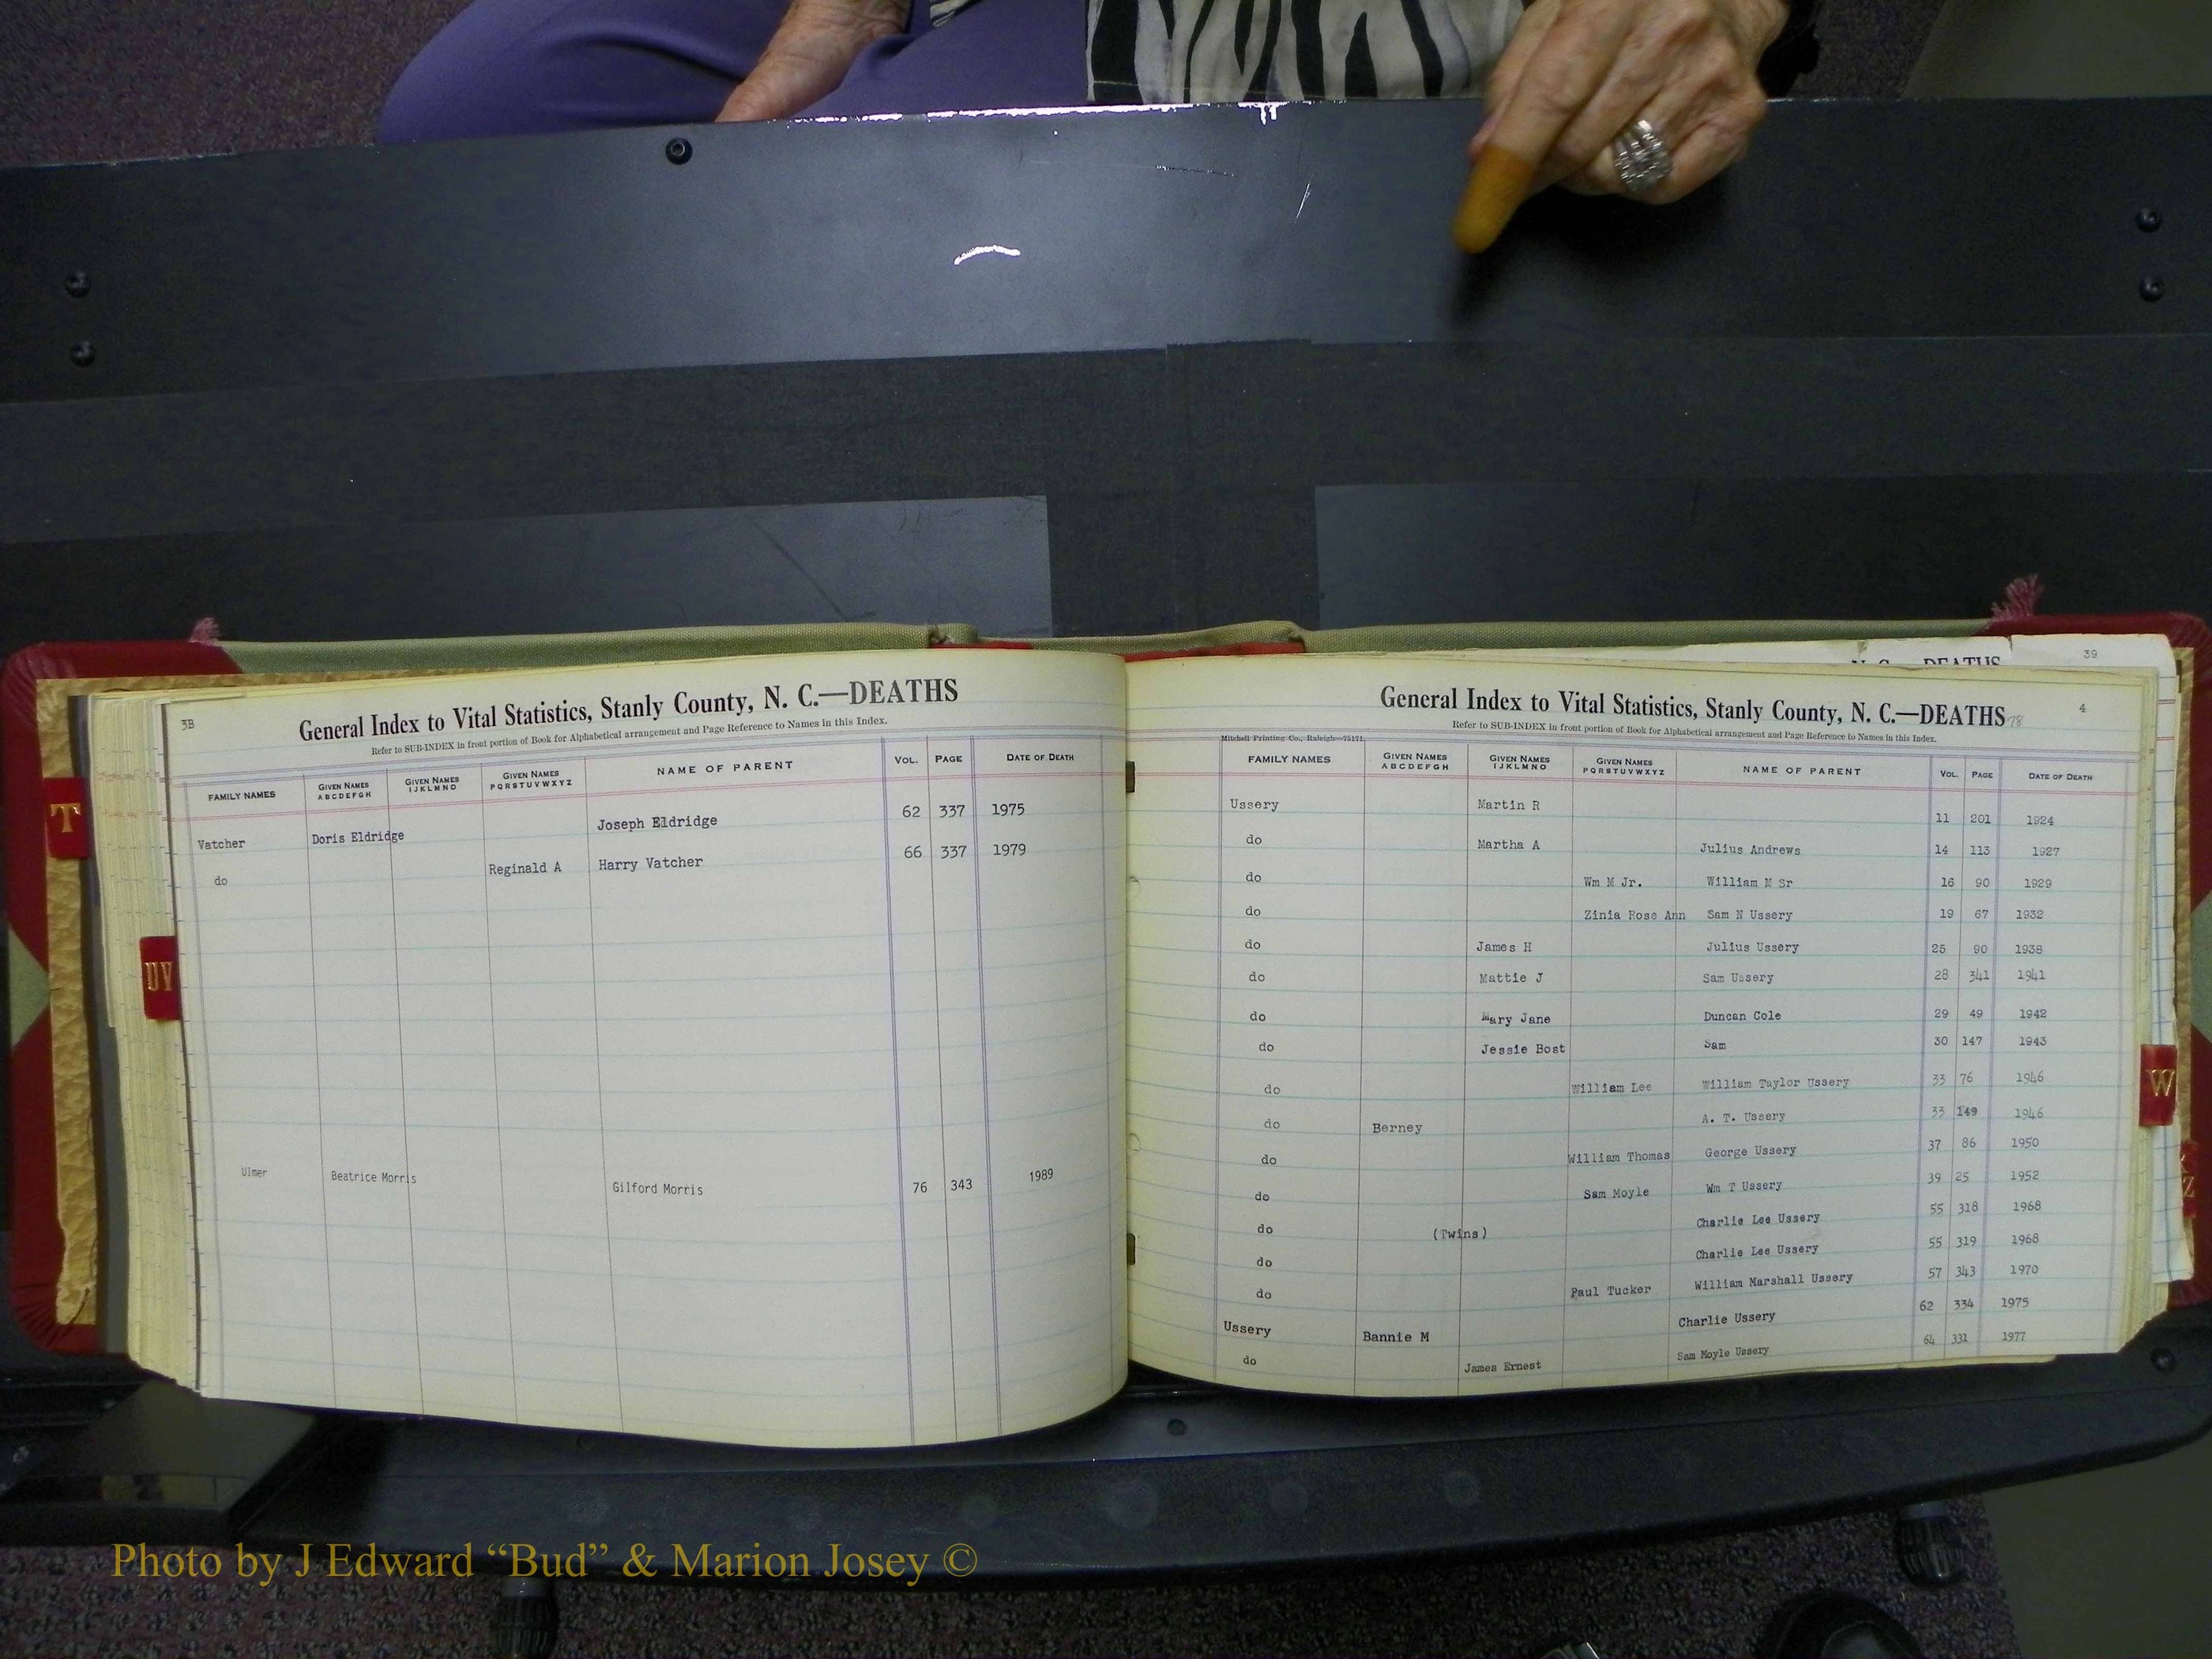 39
N. C.—DEATHS
3B
General Index to Vital Statistics, Stanly County, N. C.—DEATHS
Refer to SUB-INDEX in front portion of Book for Alphabetical arrangement and Page Reference to Names in this Index.
FAMILY NAMES GIVEN NAMES ABCDEFGH GIVEN NAMES IJKLMNO GIVEN NAMES PQRSTUVWXYZ NAME OF PARENT VOL. PAGE DATE OF DEATH
Vatcher Doris Eldridge Joseph Eldridge 62 337 1975
do Reginald A Harry Vatcher 66 337 1979
Ulmer Beatrice Morris Gilford Morris 76 343 1989
T
UV
General Index to Vital Statistics, Stanly County, N. C.—DEATHS 78
4
Refer to SUB-INDEX in front portion of Book for Alphabetical arrangement and Page Reference to Names in this Index.
Mitchell Printing Co., Raleigh—75171
FAMILY NAMES GIVEN NAMES ABCDEFGH GIVEN NAMES IJKLMNO GIVEN NAMES PQRSTUVWXYZ NAME OF PARENT VOL. PAGE DATE OF DEATH
Ussery Martin R 11 201 1924
do Martha A Julius Andrews 14 113 1927
do Wm M Jr. William M Sr 16 90 1929
do Zinia Rose Ann Sam N Ussery 19 67 1932
do James H Julius Ussery 25 90 1938
do Mattie J Sam Ussery 28 341 1941
do Mary Jane Duncan Cole 29 49 1942
do Jessie Bost Sam 30 147 1943
do William Lee William Taylor Ussery 33 76 1946
do Berney A. T. Ussery 33 149 1946
do William Thomas George Ussery 37 86 1950
do Sam Moyle Wm T Ussery 39 25 1952
do (Twins) Charlie Lee Ussery 55 318 1968
do Charlie Lee Ussery 55 319 1968
do Paul Tucker William Marshall Ussery 57 343 1970
Ussery Bannie M Charlie Ussery 62 334 1975
do James Ernest Sam Moyle Ussery 64 331 1977
W
Z
Photo by J Edward “Bud” & Marion Josey ©